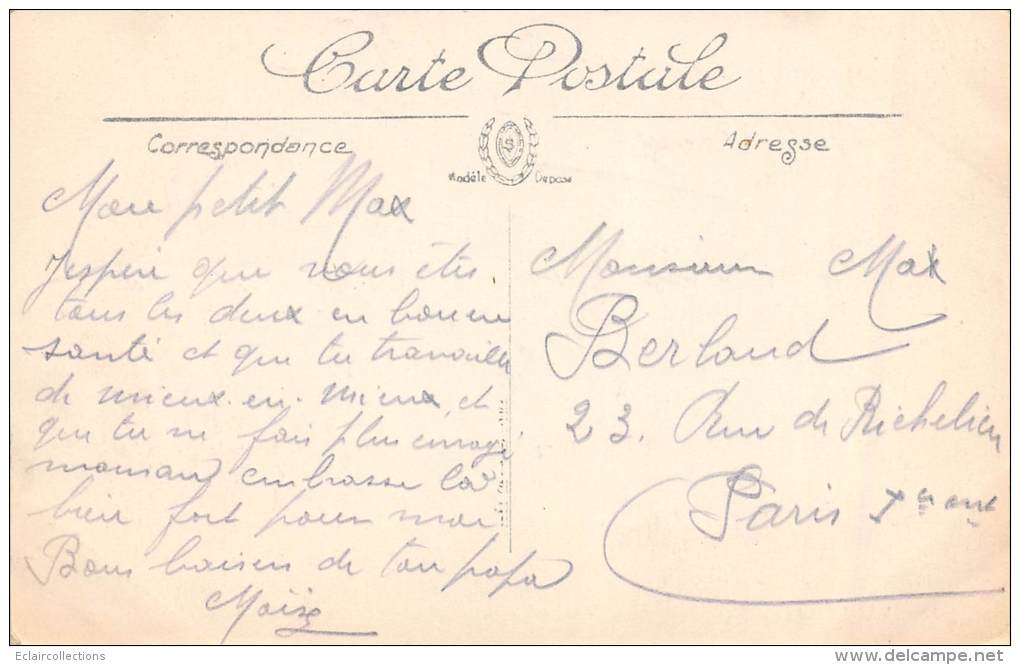 Carte Postale
Correspondance
Adresse
Modèle Déposé
S
Mon petit Max
J'espère que vous êtes
tous les deux en bonne
santé et que tu travailles
de mieux en mieux, et
que tu ne fais plus
maman embrasse la
bien fort pour moi
Bons baisers de ton papa
Moïse
Monsieur Max
Berland
23. Rue de Richelieu
Paris
Eclaircollections
www.delcampe.net